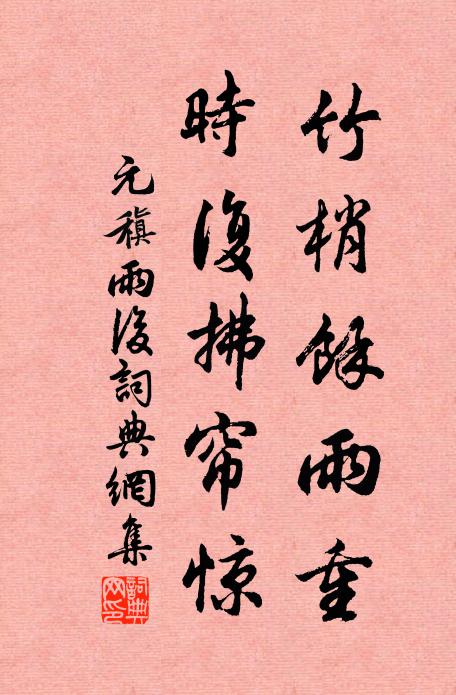 竹梢餘雨重
時復拂帘惊
元稹雨後詞典網集
詞典網印